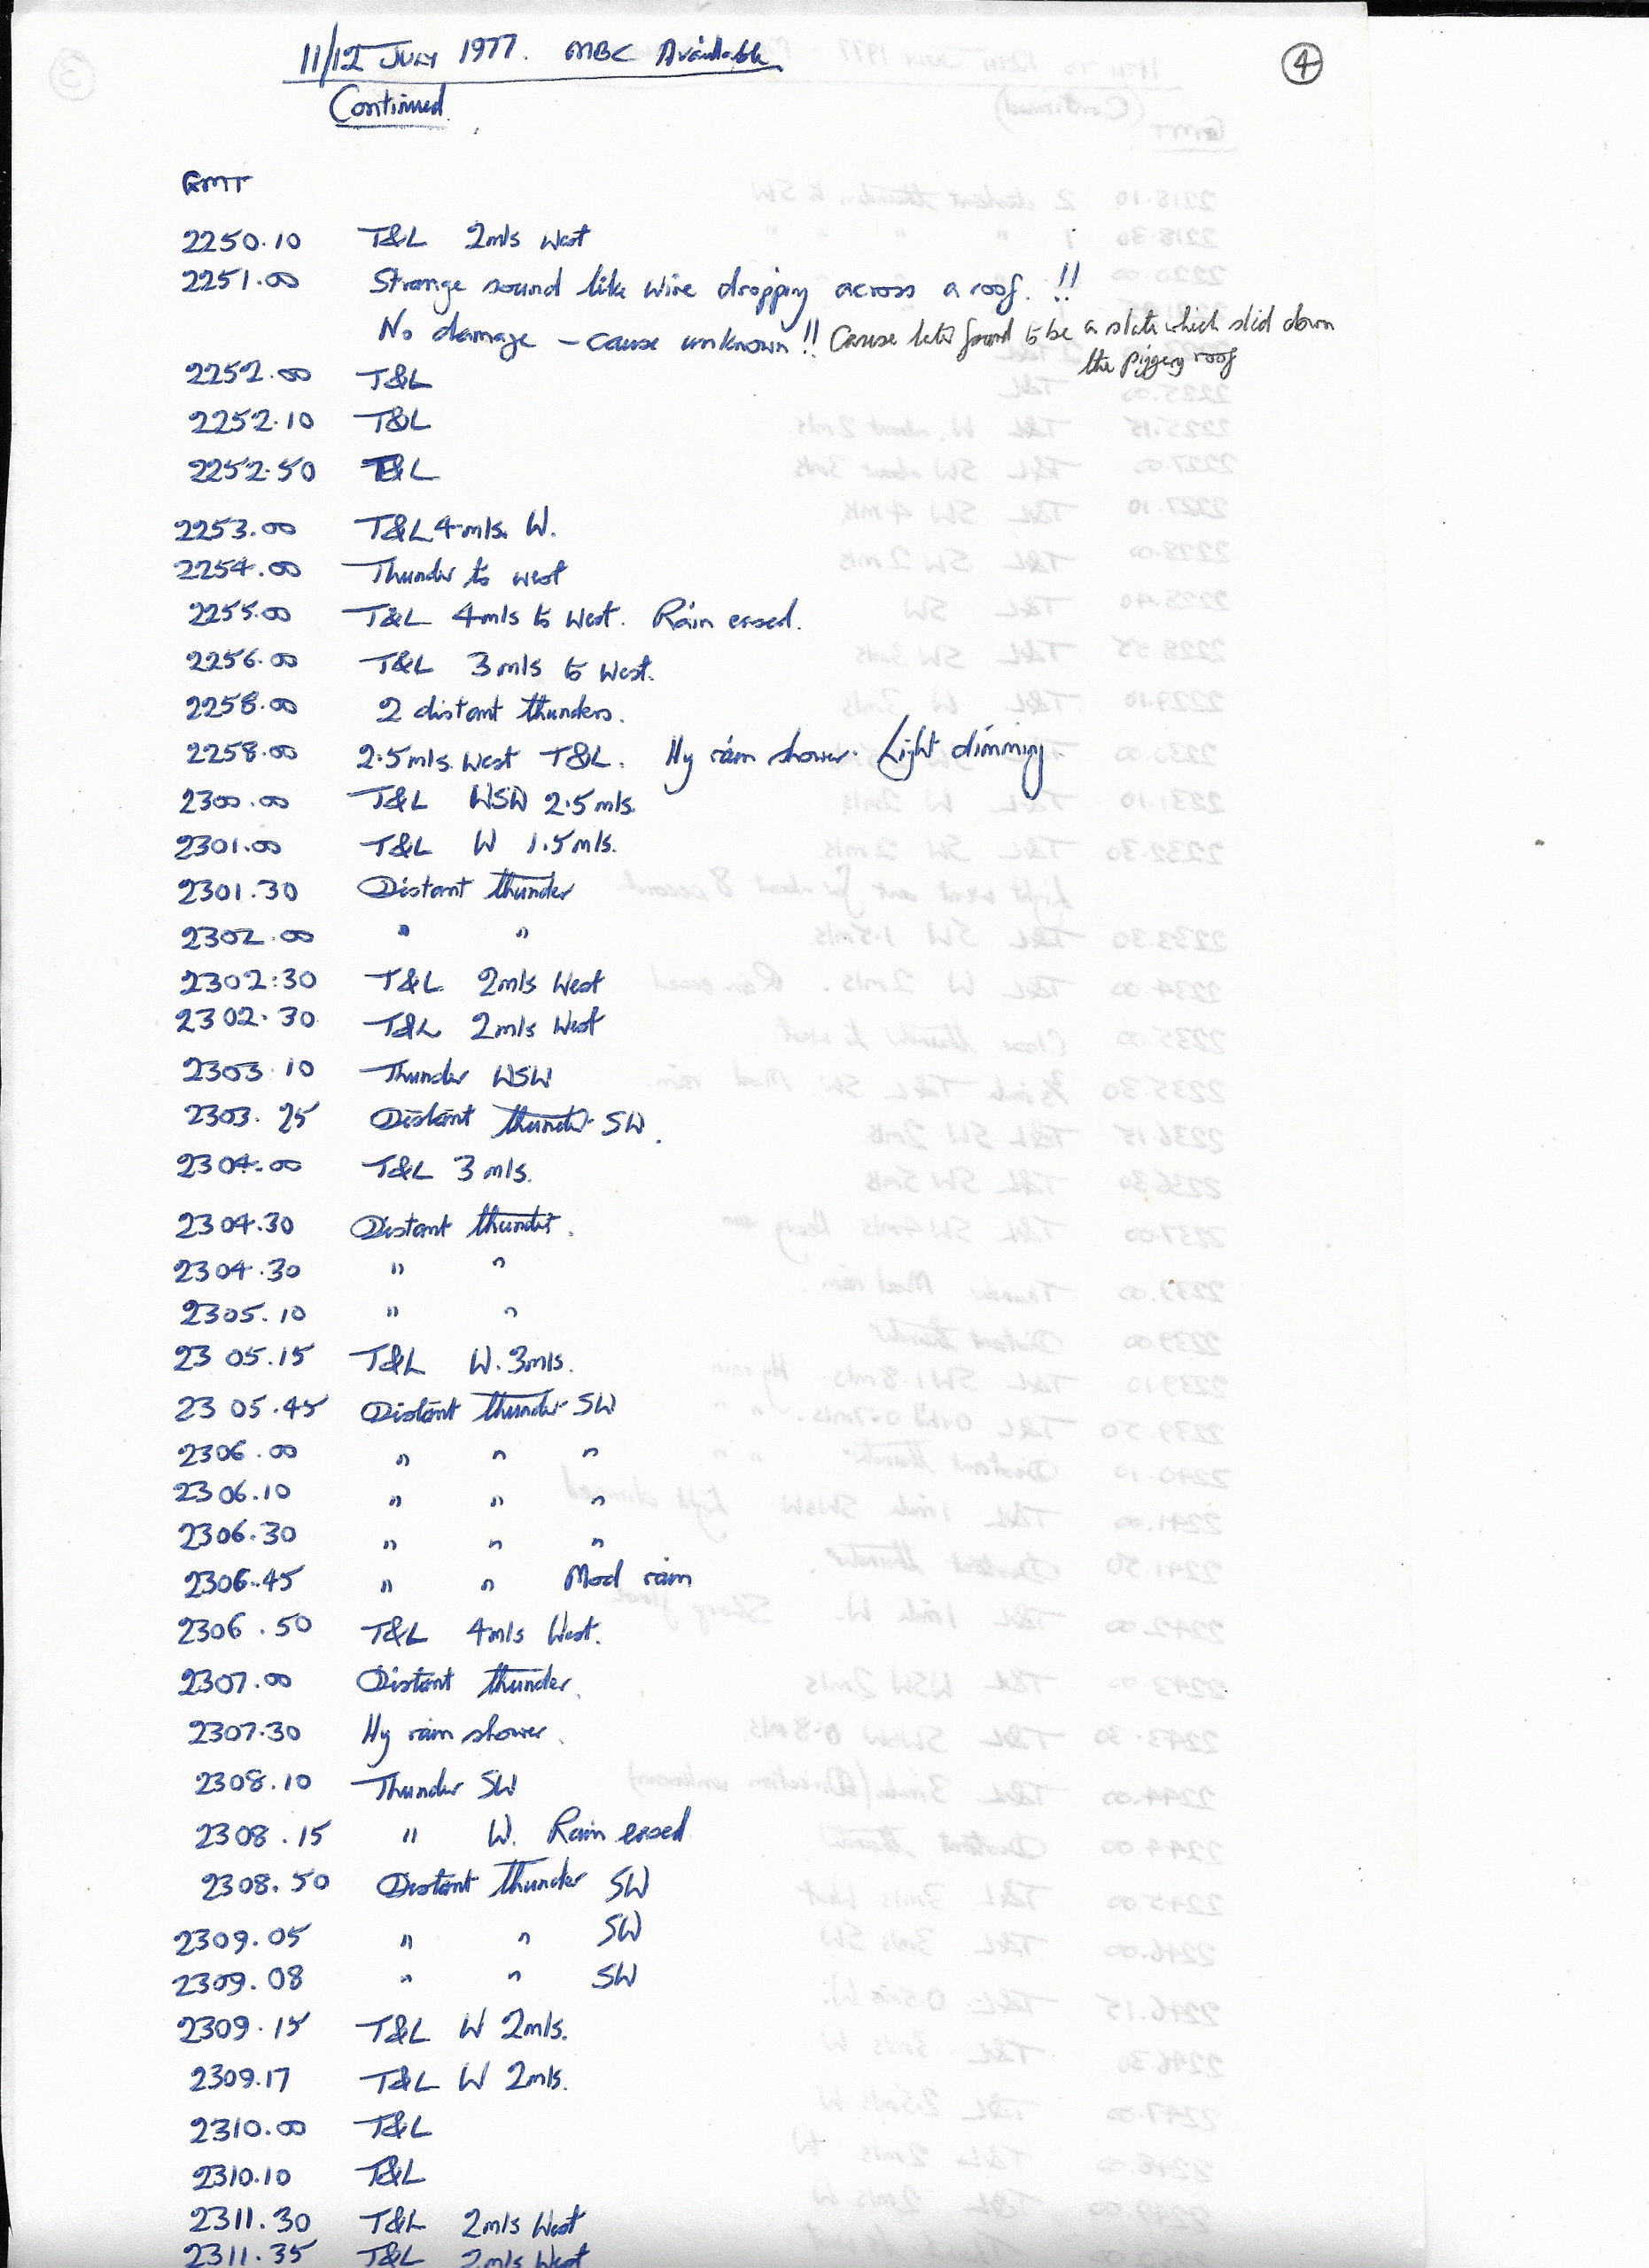 11/12 JULY 1977. MBC Available
④
Continued.
GMT
2250.10 T&L 2mls West
2251.00 Strange sound like wire dropping across a roof. !!
No damage - cause unknown!! Cause later found to be a slate which slid down
the piggery roof
2252.00 T&L
2252.10 T&L
2252.50 T&L
2253.00 T&L 4mls. W.
2254.00 Thunder to west
2255.00 T&L 4mls to West. Rain eased.
2256.00 T&L 3mls to West.
2258.00 2 distant thunders.
2258.00 2.5mls. West T&L. Hy rain shower. Light dimming.
2300.00 T&L WSW 2.5mls.
2301.00 T&L W 1.5mls.
2301.30 Distant thunder
2302.00 " "
2302:30 T&L 2mls West
2302.30 T&L 2mls West
2303.10 Thunder WSW
2303.25 Distant thunder SW.
2304.00 T&L 3mls.
2304.30 Distant thunder.
2304.30 " "
2305.10 " "
2305.15 T&L W. 3mls.
2305.45 Distant thunder SW
2306.00 " " "
2306.10 " " "
2306.30 " " "
2306.45 " " Mod rain
2306.50 T&L 4mls West.
2307.00 Distant thunder.
2307.30 Hy rain shower.
2308.10 Thunder SW
2308.15 " W. Rain eased
2308.50 Distant thunder SW
2309.05 " " SW
2309.08 " " SW
2309.15 T&L W 2mls.
2309.17 T&L W 2mls.
2310.00 T&L
2310.10 T&L
2311.30 T&L 2mls West
2311.35 T&L 2mls West